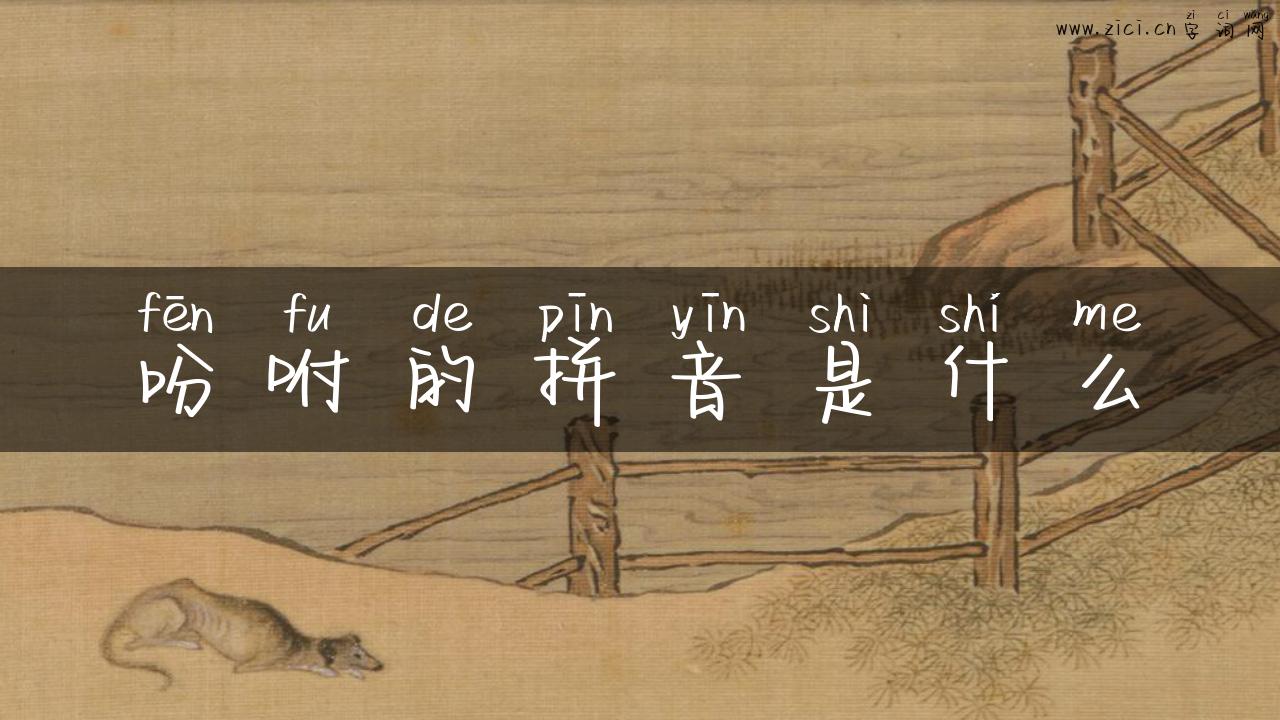 zì cí wǎng
www.zici.cn字词网
fēn fu de pīn yīn shì shí me
吩咐的拼音是什么